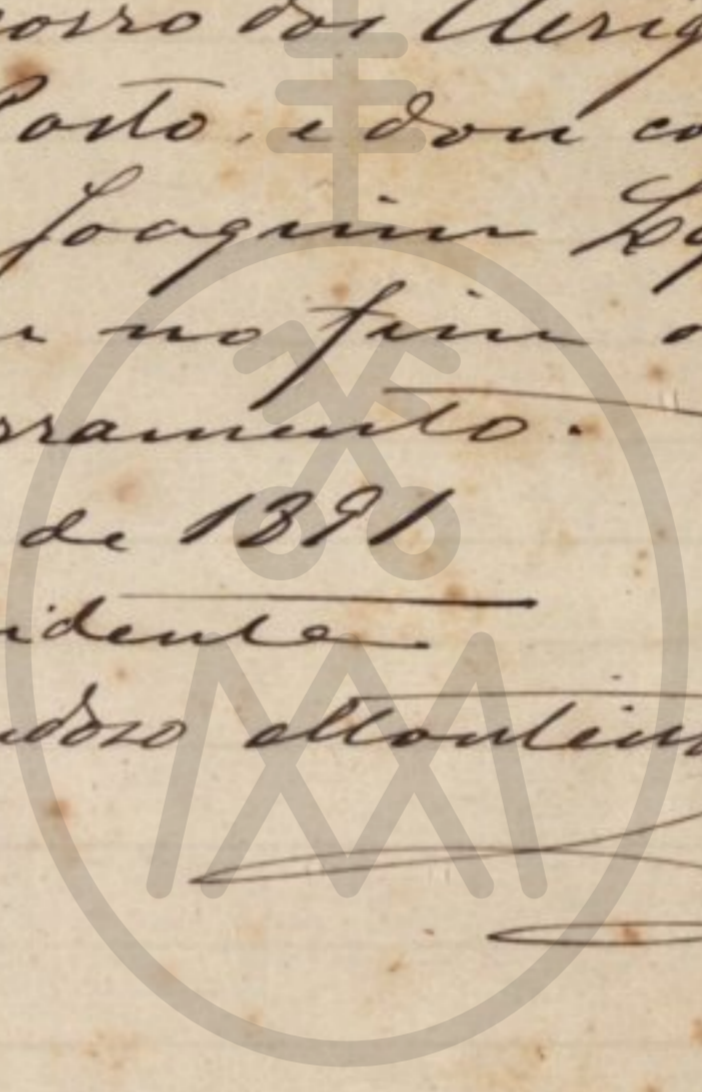 corro dos Clerig
Porto, e dou co
Joaquim Lo
r no fim d
rramento.
de 1891
idente
rdozo Monteiro